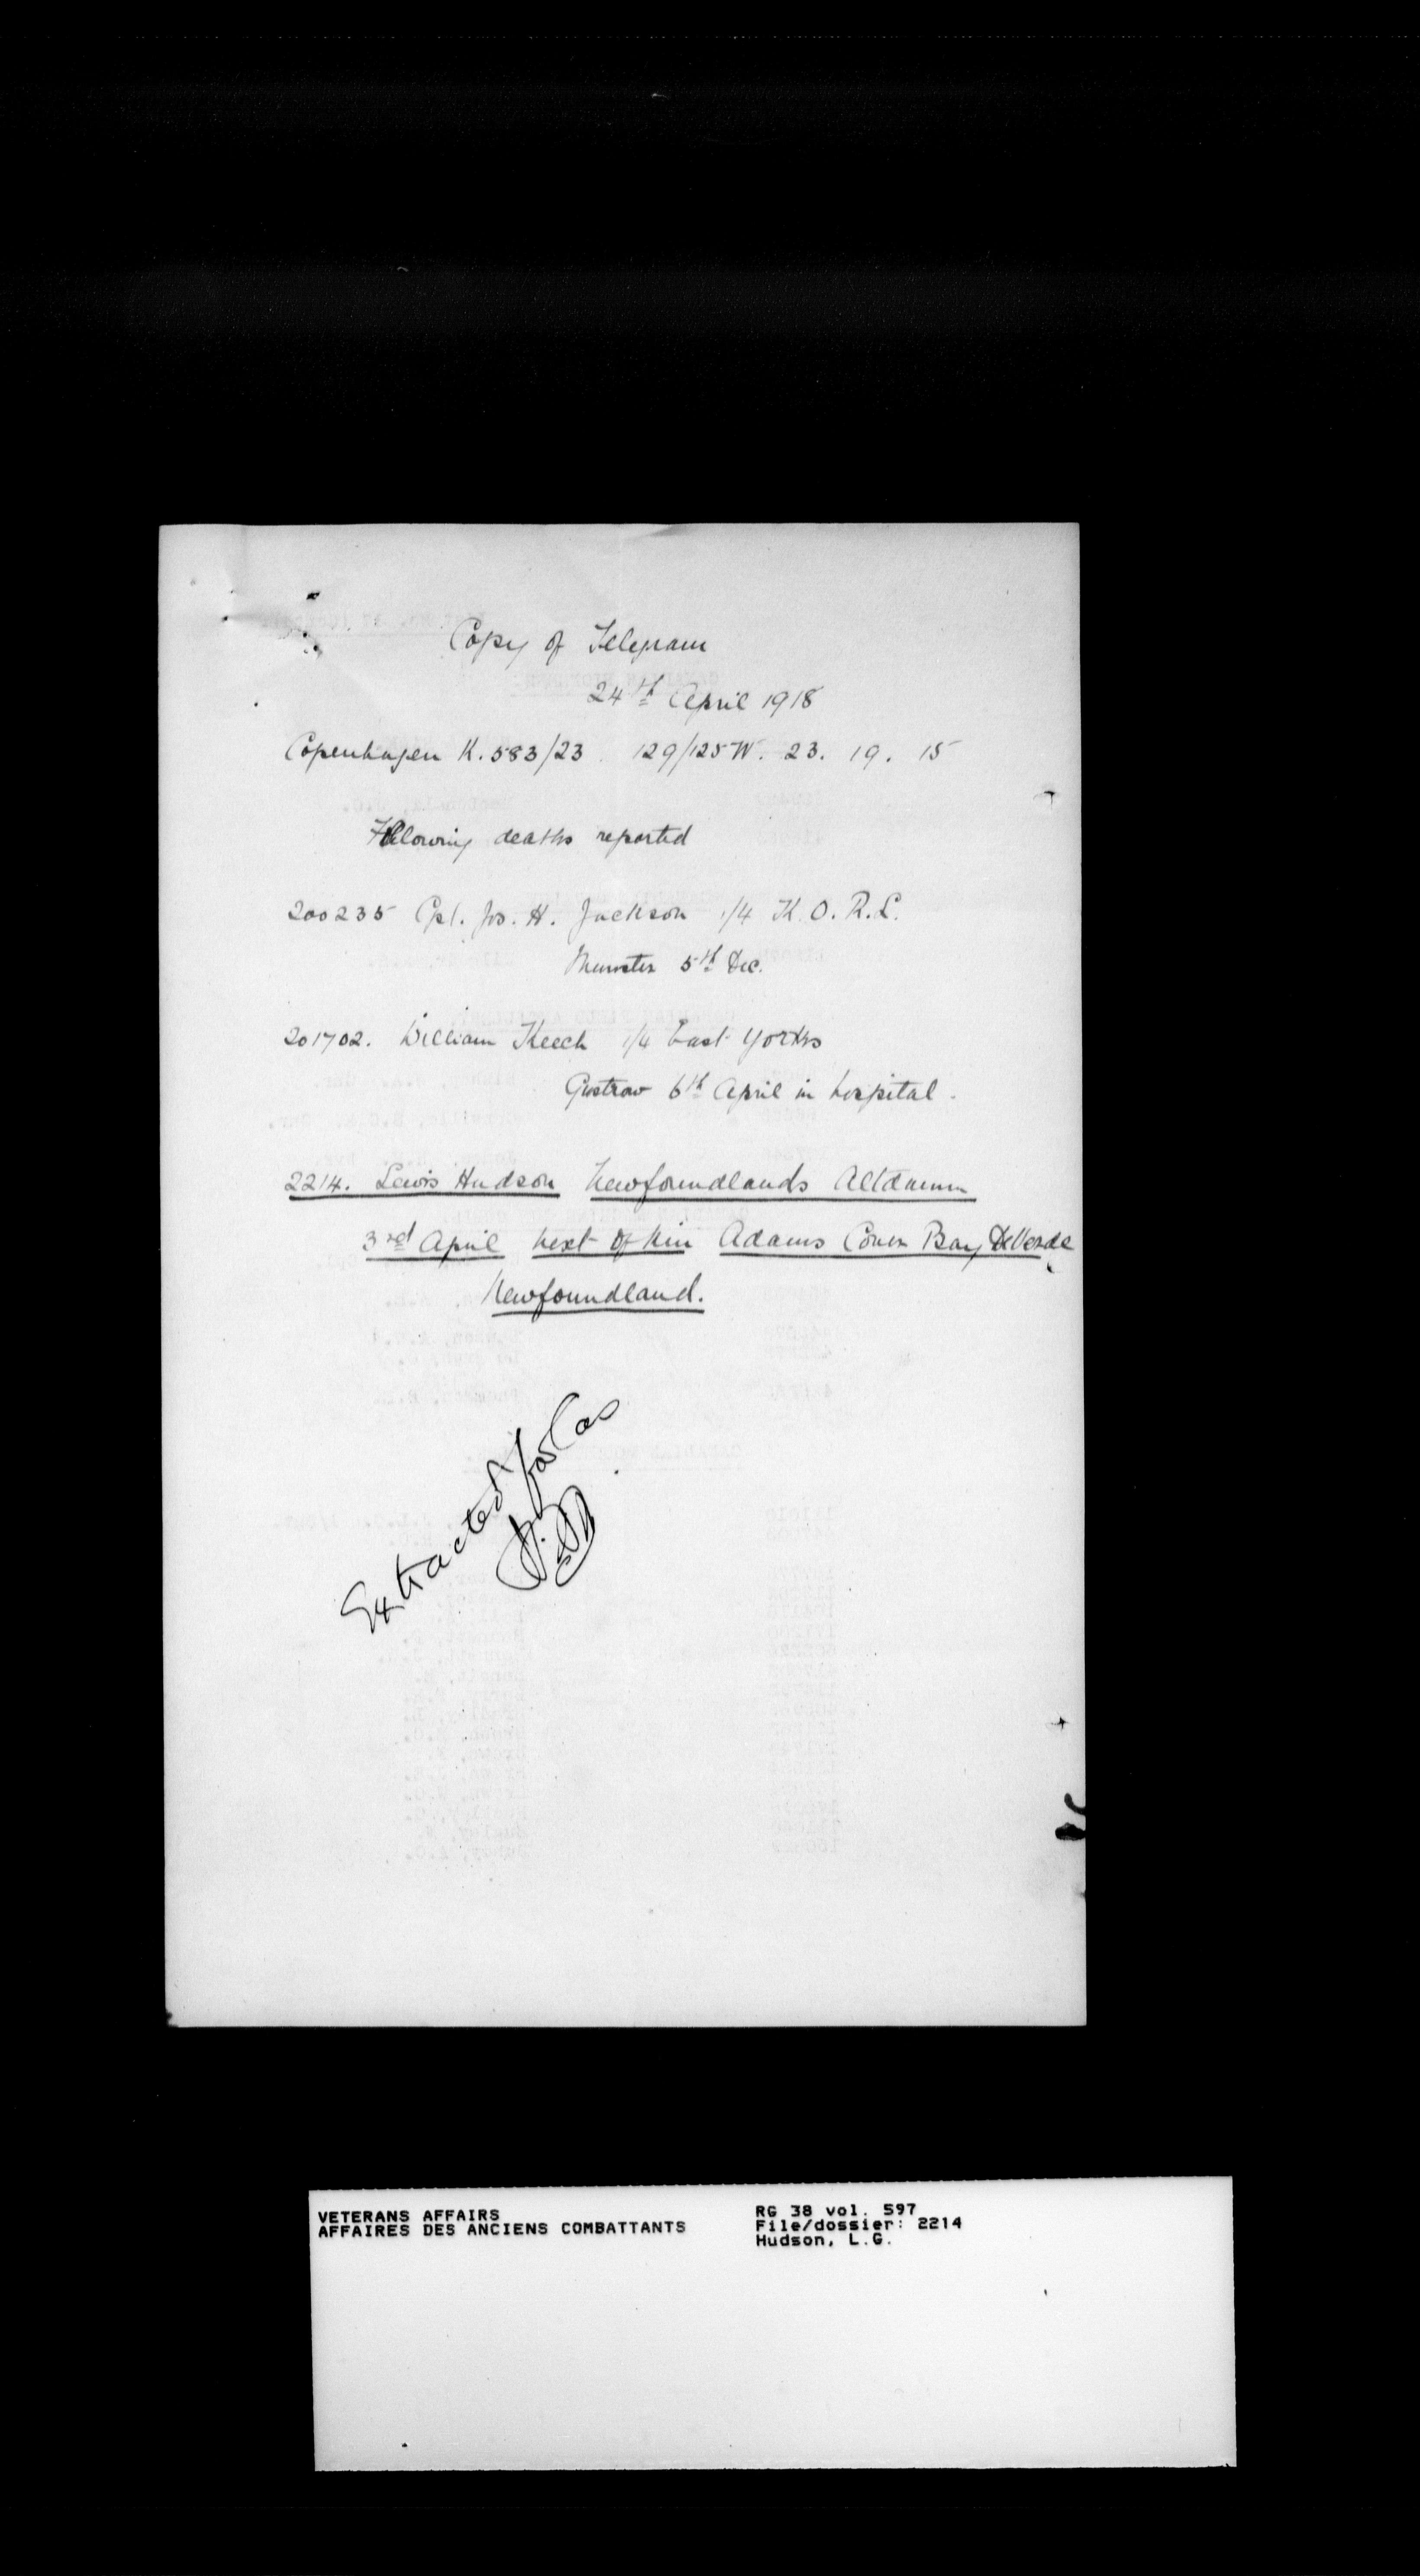 Copy of Telegram
24th April 1918
Copenhagen K. 583/23 129/125 W. 23. 19. 15
Following deaths reported
200235 Cpl. Jos. H. Jackson 1/4 K.O.R.L.
Munster 5th Dec.
201702. William Keech 1/4 East Yorks
Gustrow 6th April in hospital.
2214. Lewis Hudson Newfoundlands Altdamm
3rd April next of kin Adams Cover Bay DeVerde
Newfoundland.
Extracted for Cas
VETERANS AFFAIRS
AFFAIRES DES ANCIENS COMBATTANTS
RG 38 vol. 597
File/dossier: 2214
Hudson, L.G.